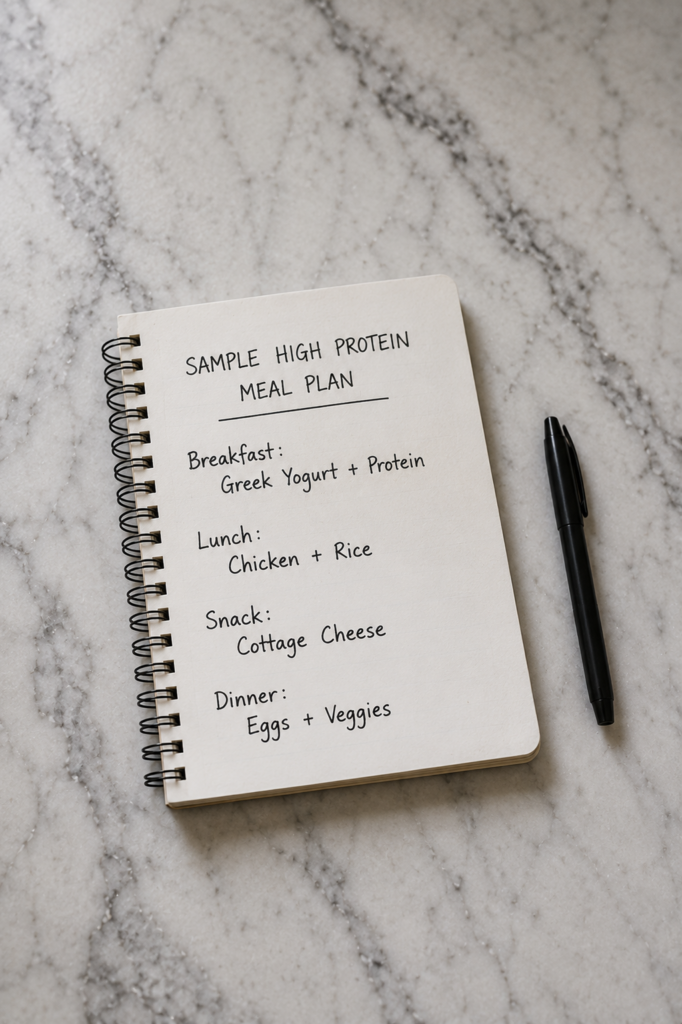 SAMPLE HIGH PROTEIN
MEAL PLAN
Breakfast:
Greek Yogurt + Protein
Lunch:
Chicken + Rice
Snack:
Cottage Cheese
Dinner:
Eggs + Veggies